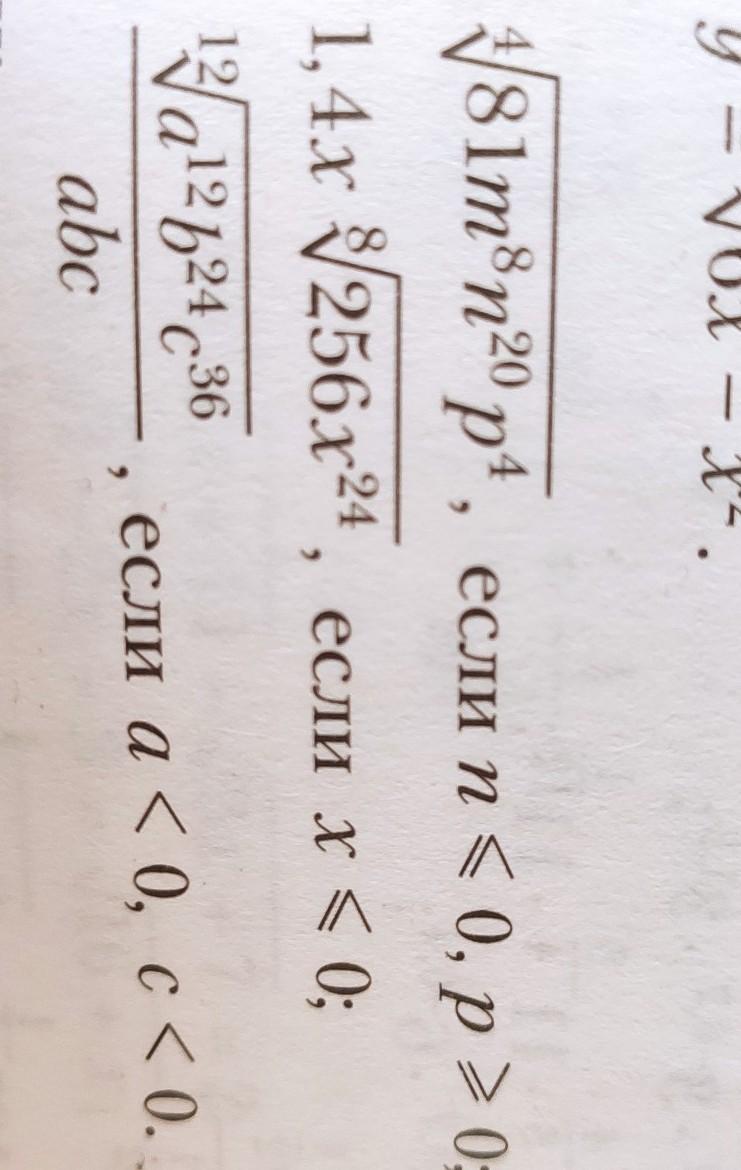 y = √6x − x².
⁴√81m⁸n²⁰p⁴, если n ⩽ 0, p ⩾ 0;
1,4x ⁸√256x²⁴, если x ⩽ 0;
¹²√a¹²b²⁴c³⁶ / abc, если a < 0, c < 0.